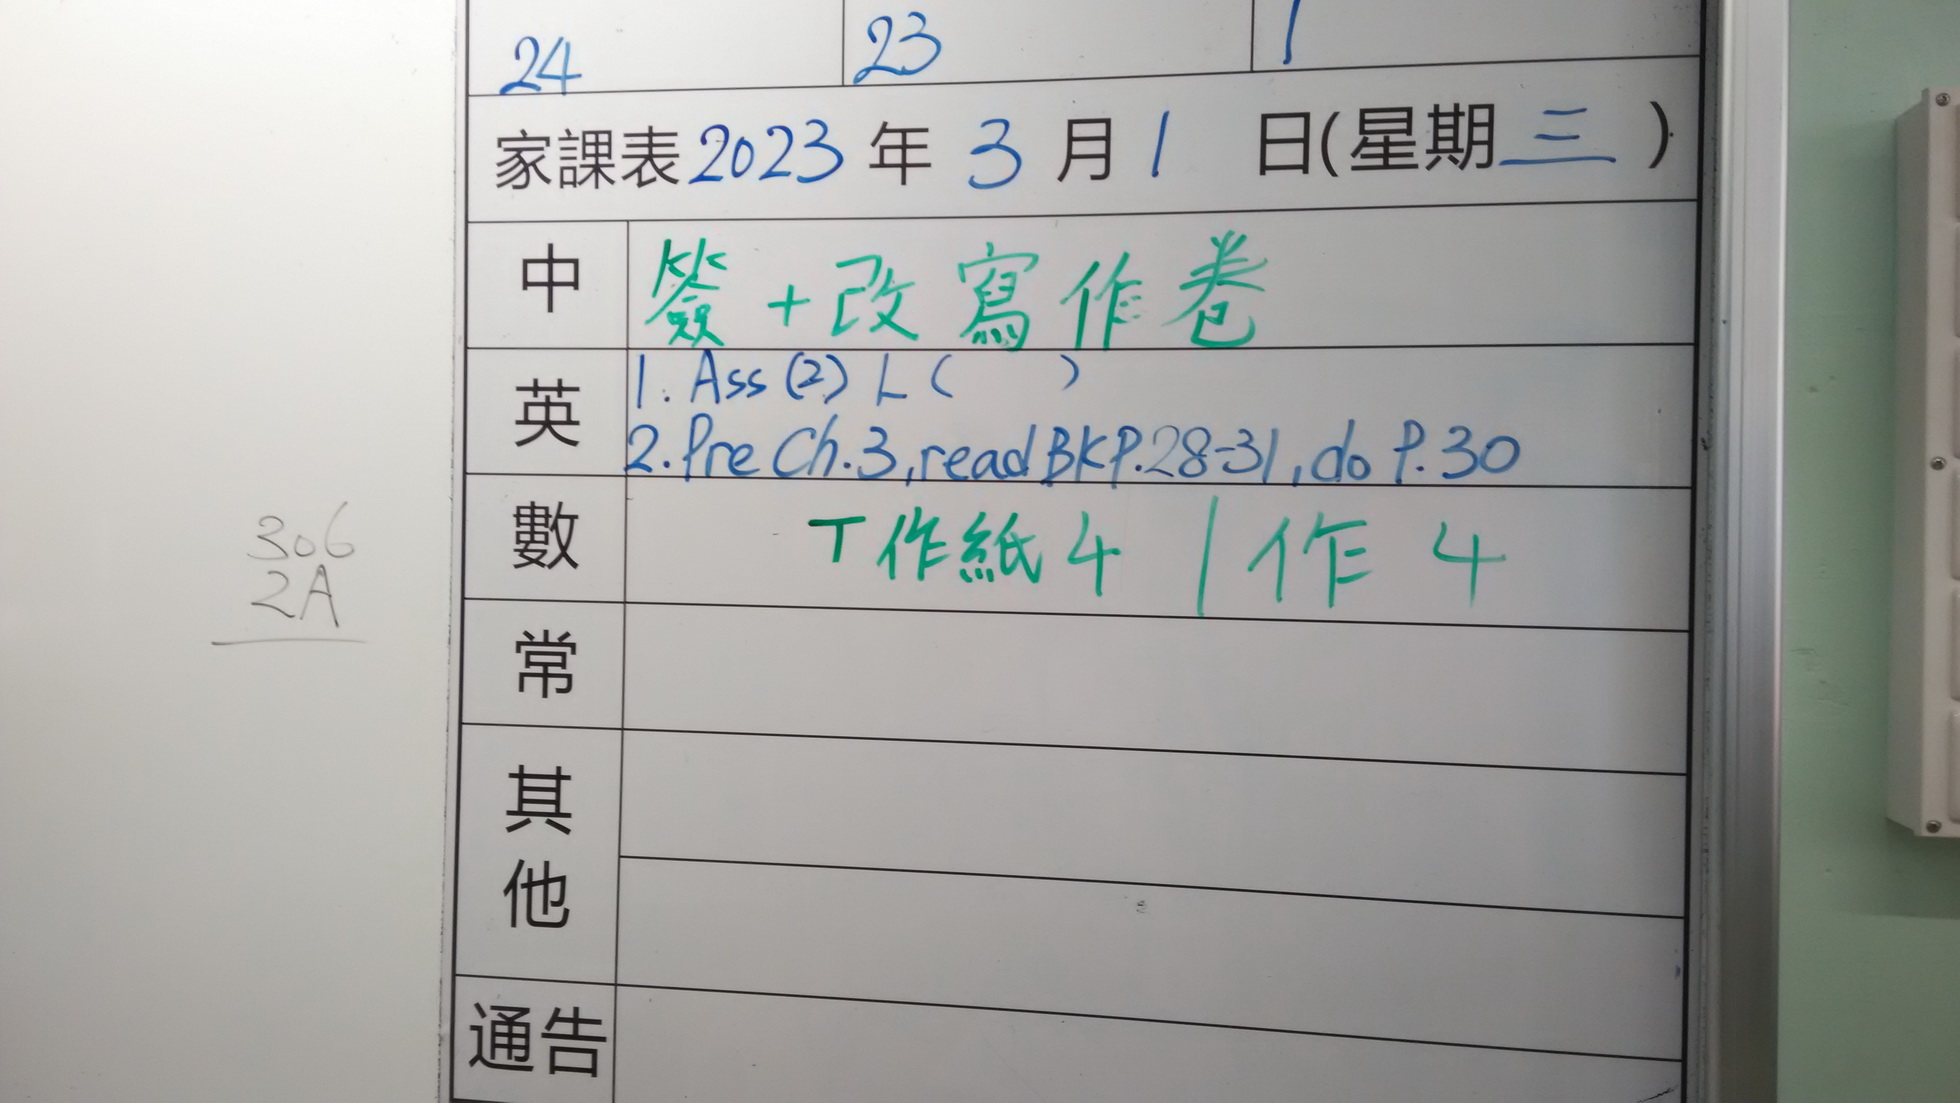 24 23 1
家課表 2023 年 3 月 1 日(星期三)
中 簽+改寫作卷
英 1. Ass (2) L ( )
2. Pre Ch.3, read BK P.28-31, do P.30
數 T作紙 4 | 作 4
常
其他
通告
306
2A